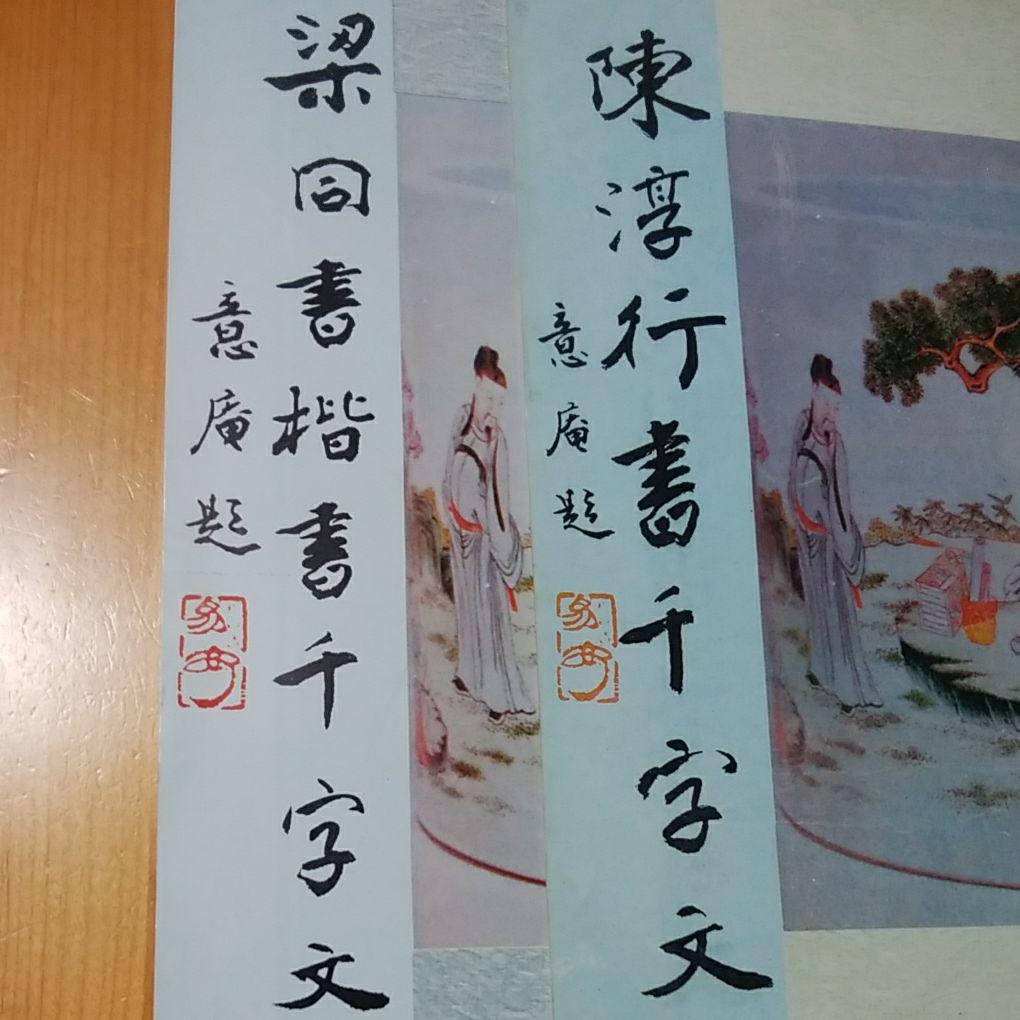 梁同書楷書千字文
意庵題
陳淳行書千字文
意庵題